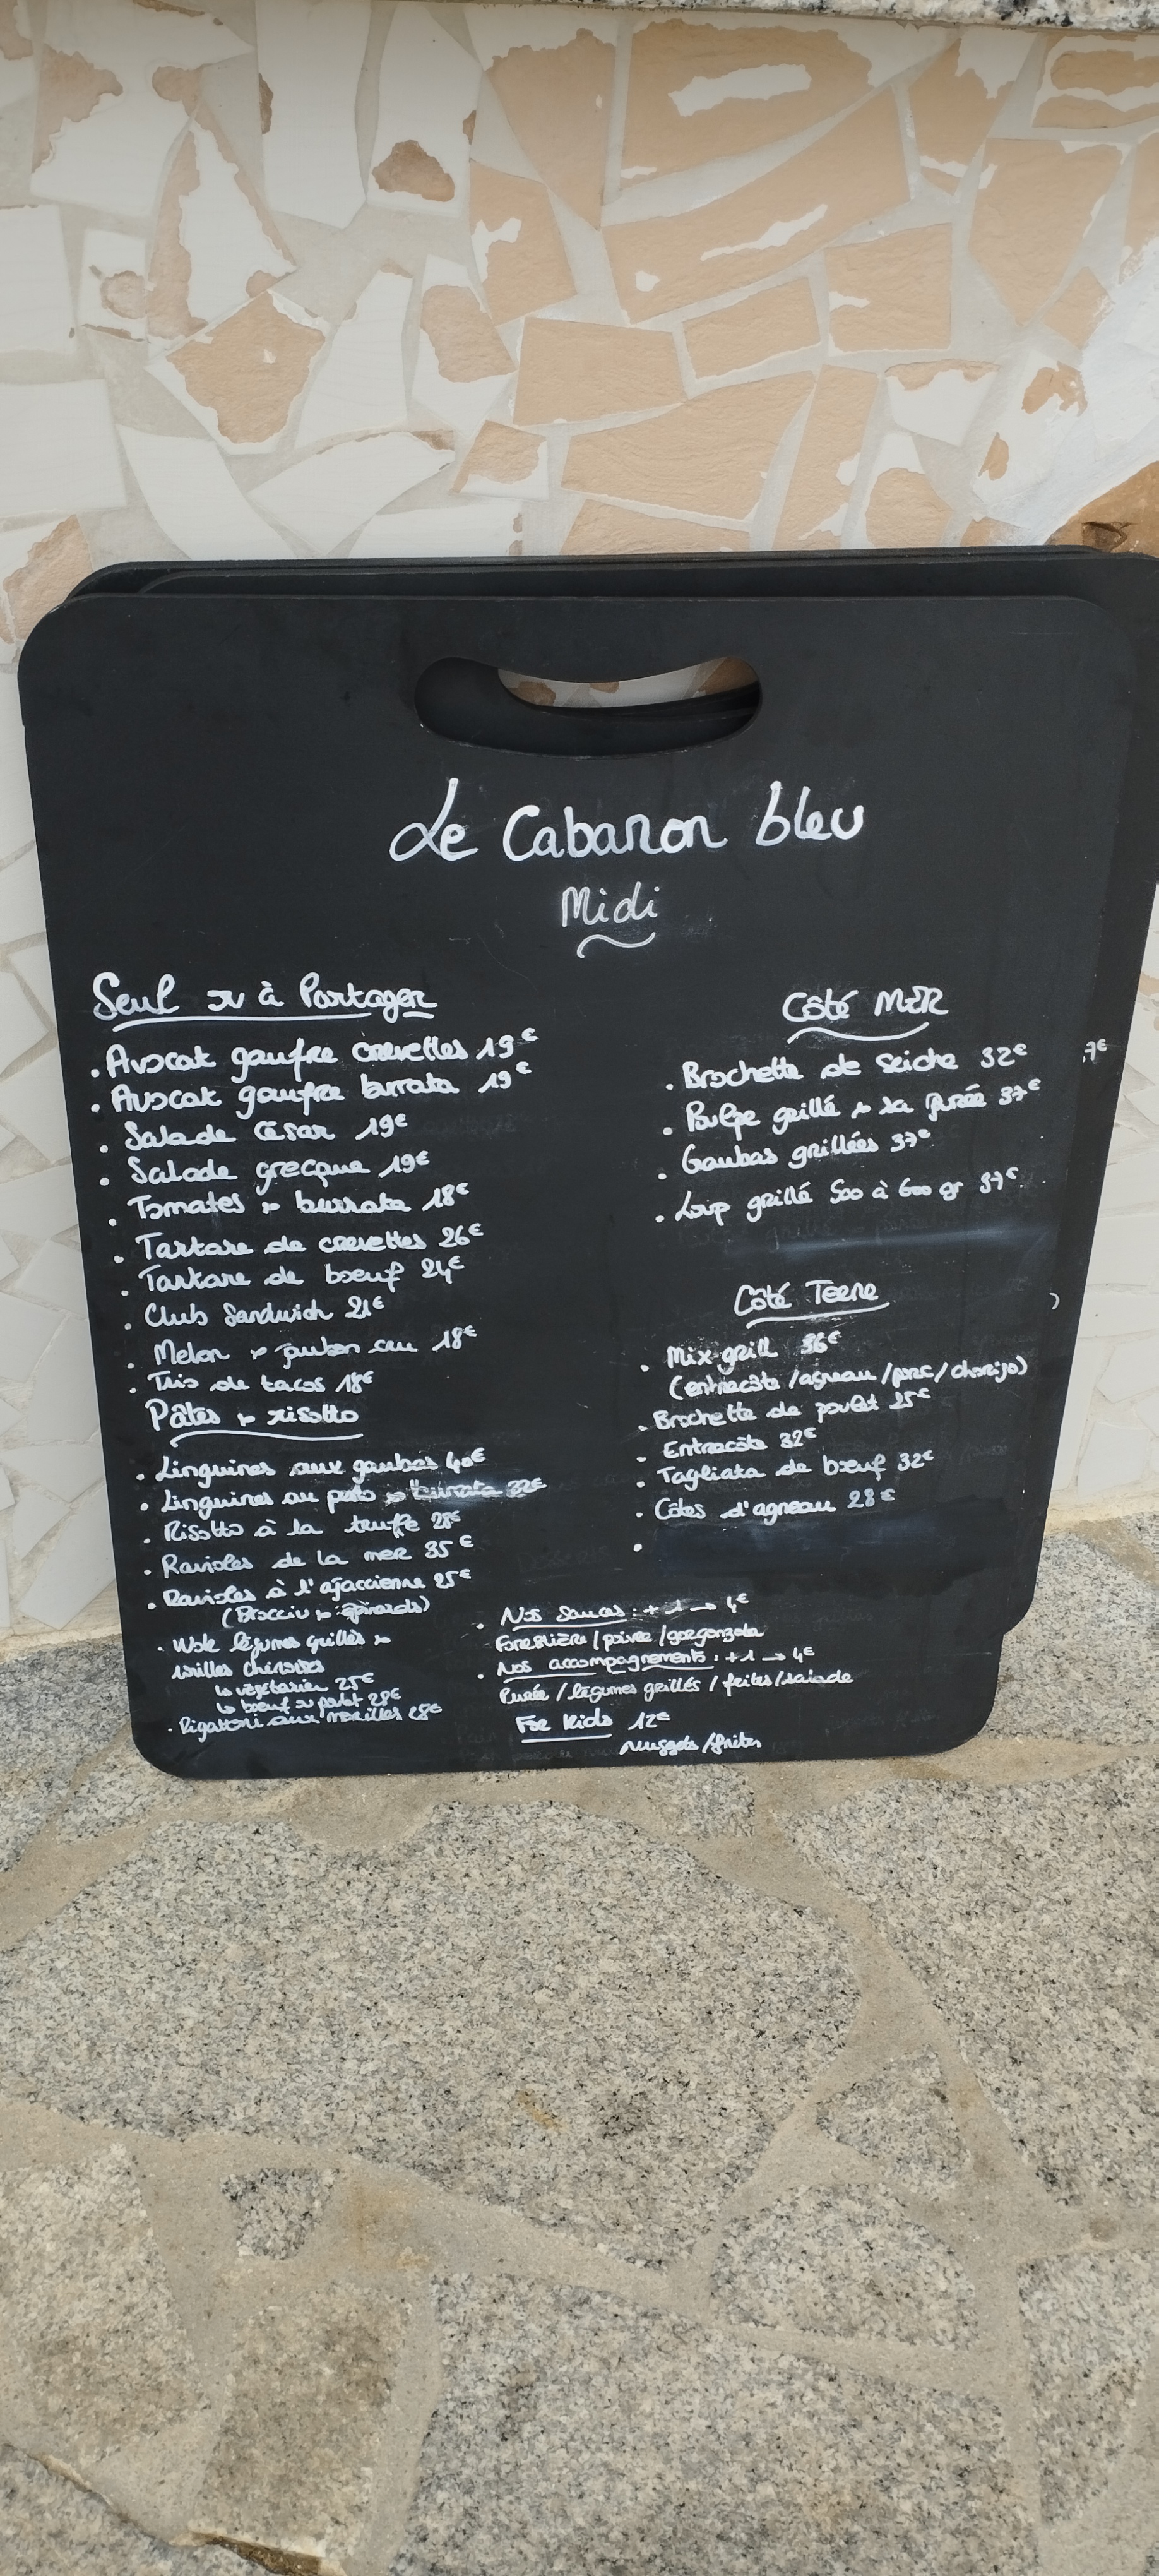 Le Cabanon bleu
Midi
Seul ou à Partager
. Avocat gaufre crevettes 19€
. Avocat gaufre burrata 19€
. Salade César 19€
. Salade grecque 19€
. Tomates & burrata 18€
. Tartare de crevettes 26€
. Tartare de boeuf 24€
. Club Sandwich 21€
. Melon & jambon cru 18€
. Trio de tacos 18€
Pâtes & risotto
. Linguines aux gambas 40€
. Linguines au pesto & burrata 32€
. Risotto à la truffe 28€
. Ravioles de la mer 35€
. Ravioles à l'ajaccienne 25€
(Brocciu & épinards)
. Wok légumes grillés &
nouilles chinoises
↳ végétarien 25€
↳ boeuf ou poulet 28€
. Rigattoni aux morilles 28€
Côté MER
. Brochette de seiche 32€
. Poulpe grillé & sa purée 37€
. Gambas grillées 37€
. Loup grillé 500 à 600 gr 37€
7€
Côté Terre
. Mix-grill 36€
(entrecôte / agneau / porc / chorizo)
. Brochette de poulet 25€
. Entrecôte 32€
. Tagliata de boeuf 32€
. Côtes d'agneau 28€
.
. Nos Sauces : + 1 → 4€
Forestière / poivre / gorgonzola
. Nos accompagnements : + 1 → 4€
Purée / légumes grillés / frites / salade
For Kids 12€
Nuggets / frites